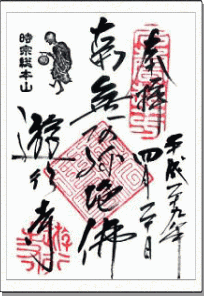 奉拝
平成二十九年
四月二十日
南無阿弥陀佛
時宗総本山
遊行寺